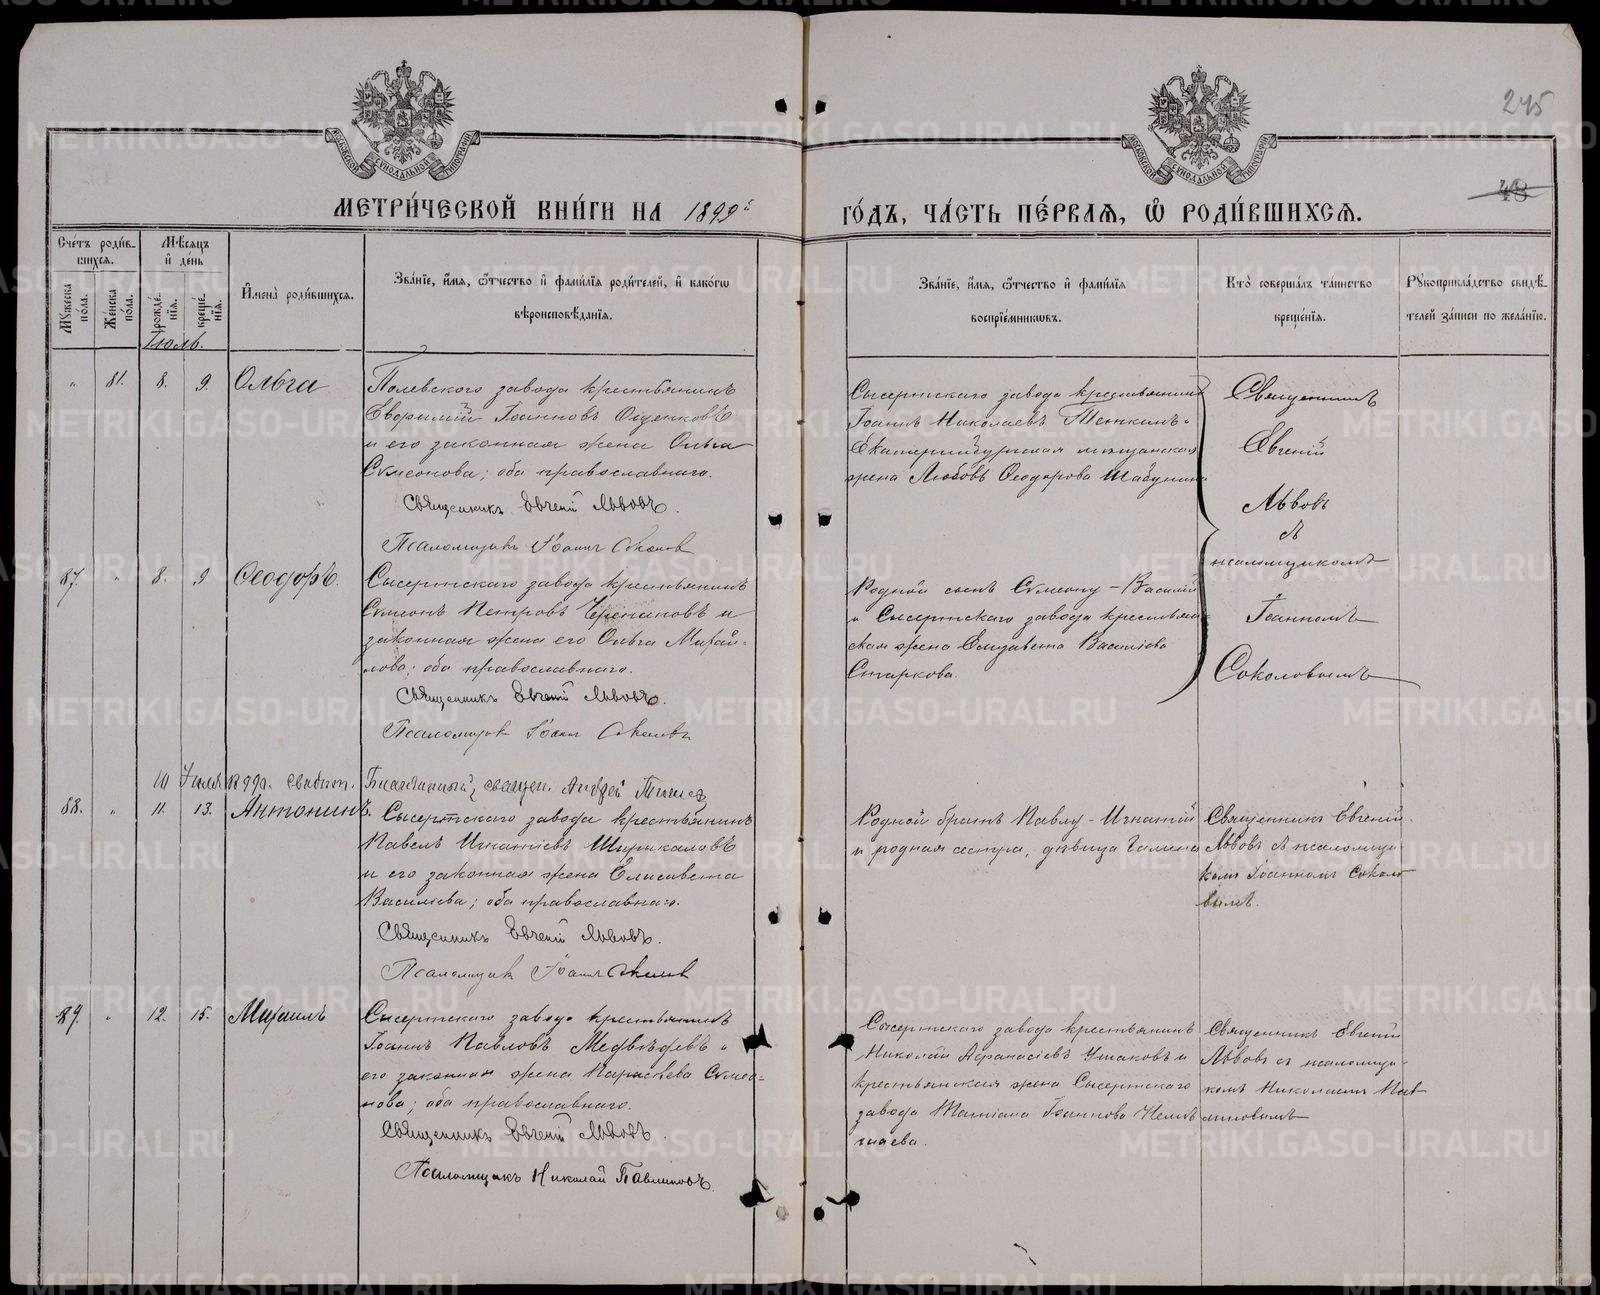 245
48
МЕТРИ́ЧЕСКОЙ КНИ́ГИ НА 1899й
ГО́ДЪ, ЧА́СТЬ ПЕ́РВАѦ, Ѡ РОДИ́ВШИХСѦ.
Сче́тъ роди́в-
шихсѧ.
Мꙋ́жеска по́ла.
Же́нска по́ла.
Мѣ́сѧцъ и҆ де́нь
рожде́нїѧ.
креще́нїѧ.
И҆мена̀ роди́вшихсѧ.
Зва́нїе, и҆́мѧ, ѻ҆́тчество и҆ фами́лїѧ роди́телей, и҆ како́гѡ
вѣроисповѣ́данїѧ.
Зва́нїе, и҆́мѧ, ѻ҆́тчество и҆ фами́лїѧ
воспрїе́мникѡвъ.
Кто̀ соверша́лъ та́инство
креще́нїѧ.
Рꙋкоприкла́дство свидѣ́-
телей за́писи по жела́нїю.
Іюль.
" 81. 8. 9. Ольга
Полевского завода крестьянинъ
Іоанновъ
и его законная жена Ольга
Сѵмеонова; оба православнаго.
Священникъ Евгеній Львовъ.
Псаломщикъ Іоаннъ Соколовъ
Сысертского завода крестьянинъ
Іоаннъ Николаевъ Теткинъ и
Екатеринбургская мѣщанская
жена Любовь Ѳеодорова Шабунина
Священникъ
Евгеній
Львовъ
съ
псаломщикомъ
Іоанномъ
Соколовымъ
87. " 8. 9 Ѳеодоръ.
Сысертскаго завода крестьянинъ
Сѵмеонъ Петровъ Черепановъ и
законная жена его Ольга Михай-
лова; оба православнаго.
Священникъ Евгеній Львовъ.
Псаломщикъ Іоаннъ Соколовъ
Родной сынъ Сѵмеону - Василій
и Сысертскаго завода крестьян-
ская жена Елизавета Василіева
Старкова.
10 Іюля 1899. священ. Андрей
88. " 11. 13. Антонинъ.
Сысертскаго завода крестьянинъ
Павелъ Игнатіевъ Ширыкаловъ
и его законная жена Елисавета
Василіева; оба православнаго.
Священникъ Евгеній Львовъ.
Псаломщикъ Іоаннъ Соколовъ
Родной братъ Павлу - Игнатій
и родная сестра, дѣвица Галина
Священникъ Евгеній
Львовъ съ псаломщи-
комъ Іоанномъ Соколо-
вымъ.
89. " 12. 15. Михаилъ
Сысертскаго завода крестьянинъ
Іоаннъ Павловъ Медвѣдевъ и
его законная жена Параскева Сѵмео-
нова; оба православнаго.
Священникъ Евгеній Львовъ.
Псаломщикъ Николай Павлиновъ.
Сысертскаго завода крестьянинъ
Николай Аѳанасіевъ Ушаковъ и
крестьянская жена Сысертскаго
завода Татіана Іоаннова
Священникъ Евгеній
Львовъ съ псаломщи-
комъ Николаемъ Пав-
линовымъ
METRIKI.GASO-URAL.RU